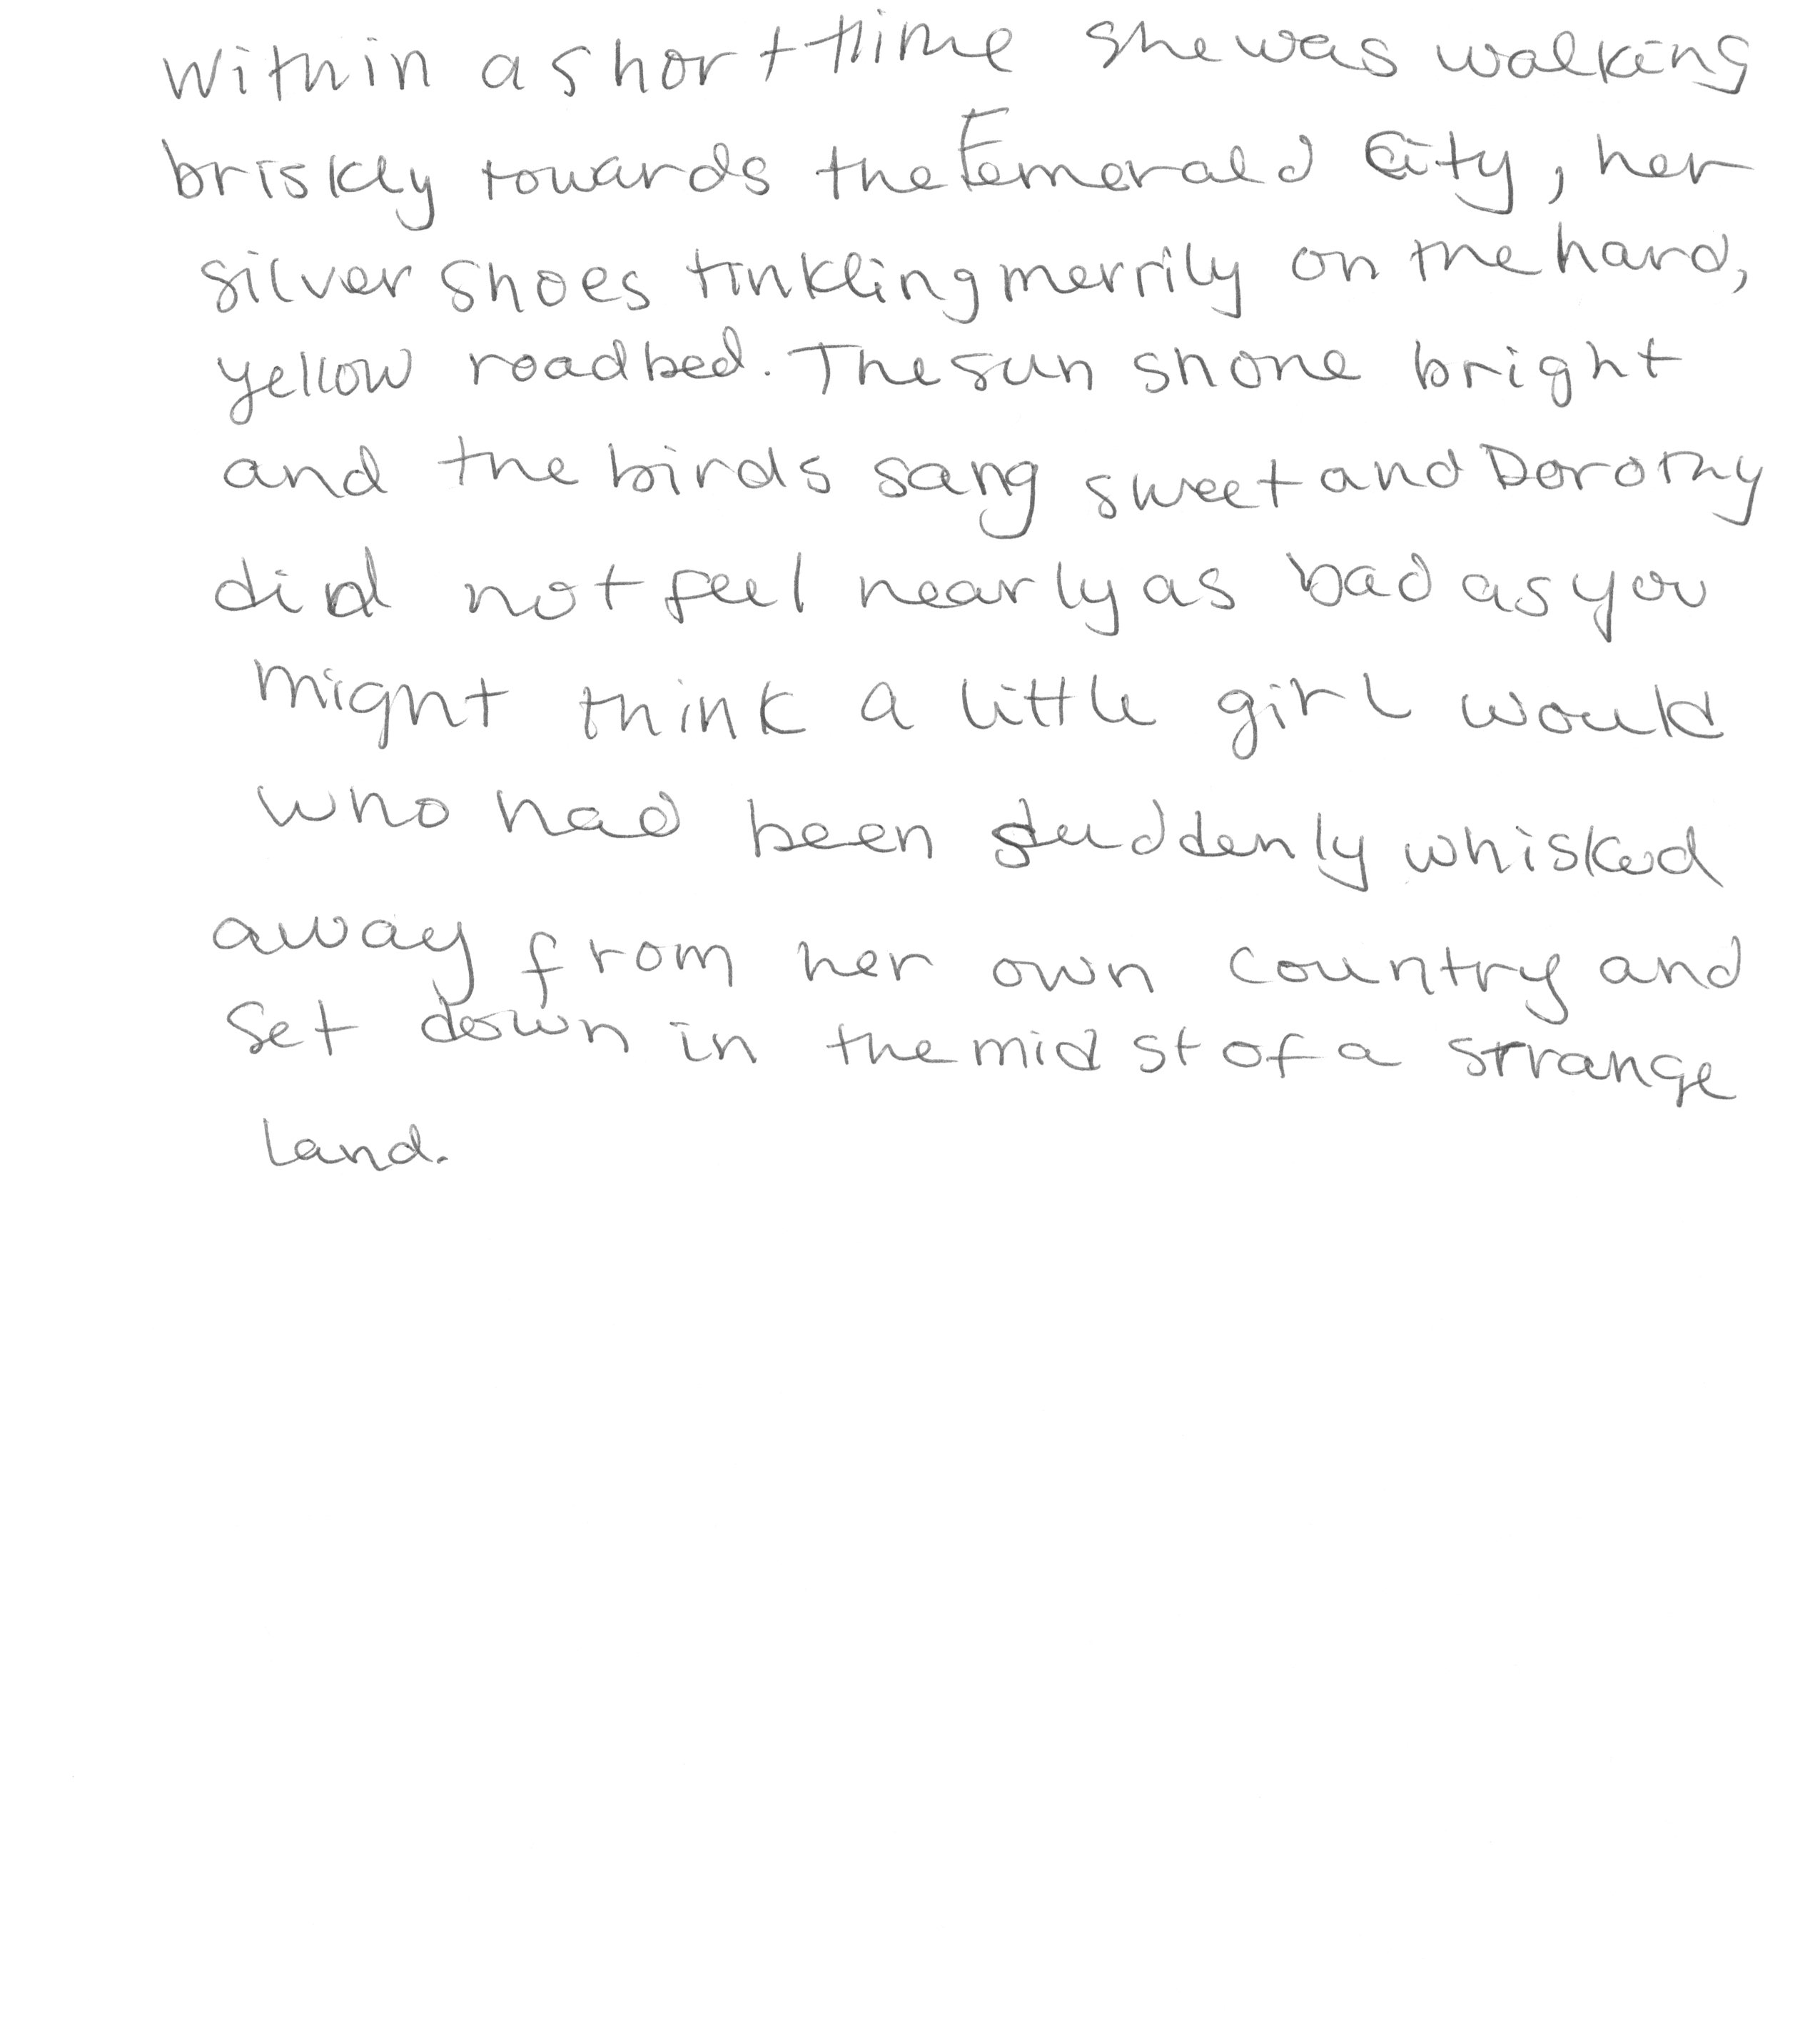 Within a short time she was walking
briskly towards the Emerald City, her
silver shoes tinkling merrily on the hard,
yellow roadbed. The sun shone bright
and the birds sang sweet and Dorothy
did not feel nearly as bad as you
might think a little girl would
who had been suddenly whisked
away from her own country and
set down in the midst of a strange
land.